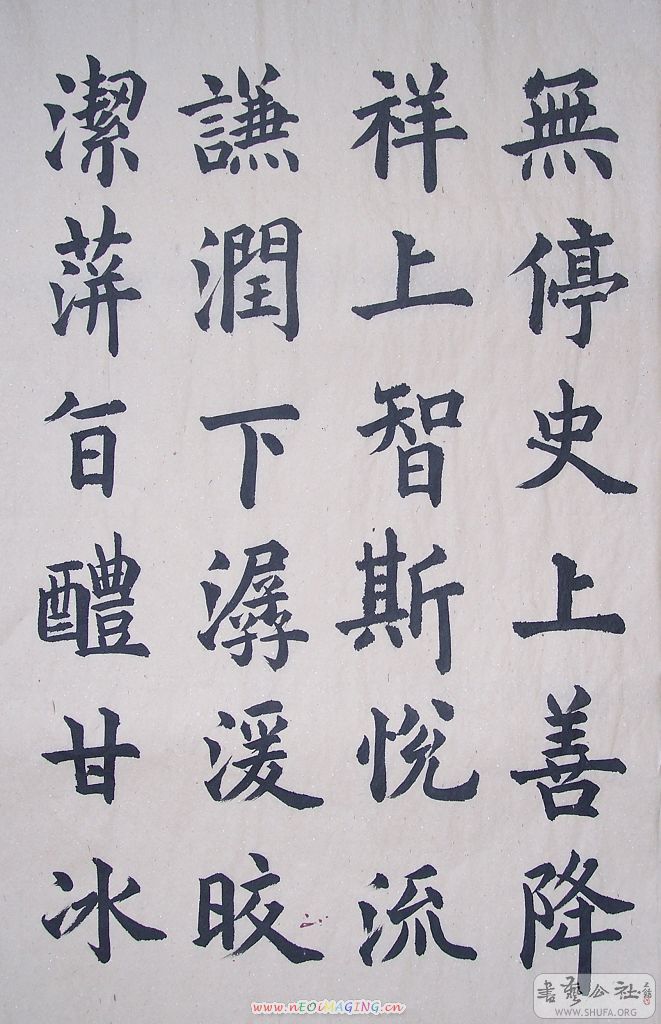 無停史上善降
祥上智斯悅流
謙潤下潺湲晈
潔蓱旨醴甘冰
書藝公社
WWW.SHUFA.ORG
www.nEOiMAGING.cn